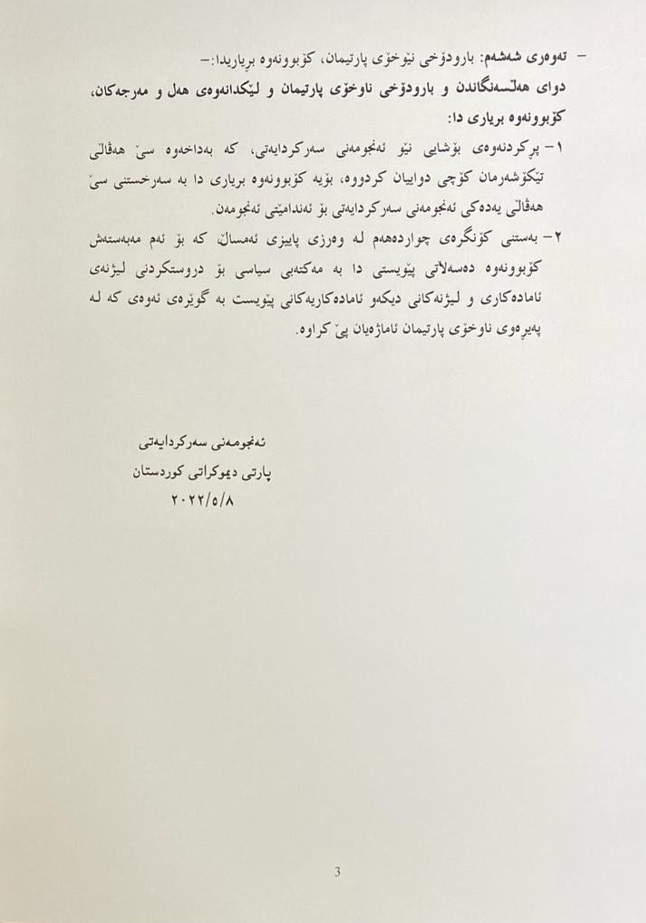 - تەوەری شەشەم: بارودۆخی نێوخۆی پارتیمان، کۆبوونەوە بڕیاریدا:-
دوای هەڵسەنگاندن و بارودۆخی ناوخۆی پارتیمان و لێکدانەوەی هەل و مەرجەکان،
کۆبوونەوە بڕیاری دا:
١- پڕکردنەوەی بۆشایی نێو ئەنجومەنی سەرکردایەتی، کە بەداخەوە سێ هەڤاڵی
تێکۆشەرمان کۆچی دواییان کردووە، بۆیە کۆبوونەوە بڕیاری دا بە سەرخستنی سێ
هەڤاڵی یەدەکی ئەنجومەنی سەرکردایەتی بۆ ئەندامێتی ئەنجومەن.
٢- بەستنی کۆنگرەی چواردەهەم لە وەرزی پاییزی ئەمساڵ، کە بۆ ئەم مەبەستەش
کۆبوونەوە دەسەڵاتی پێویستی دا بە مەکتەبی سیاسی بۆ دروستکردنی لیژنەی
ئامادەکاری و لیژنەکانی دیکەو ئامادەکاریەکانی پێویست بە گوێرەی ئەوەی کە لە
پەیڕەوی ناوخۆی پارتیمان ئاماژەیان پێ کراوە.
ئەنجومەنی سەرکردایەتی
پارتی دیموکراتی کوردستان
٢٠٢٢/٥/٨
3